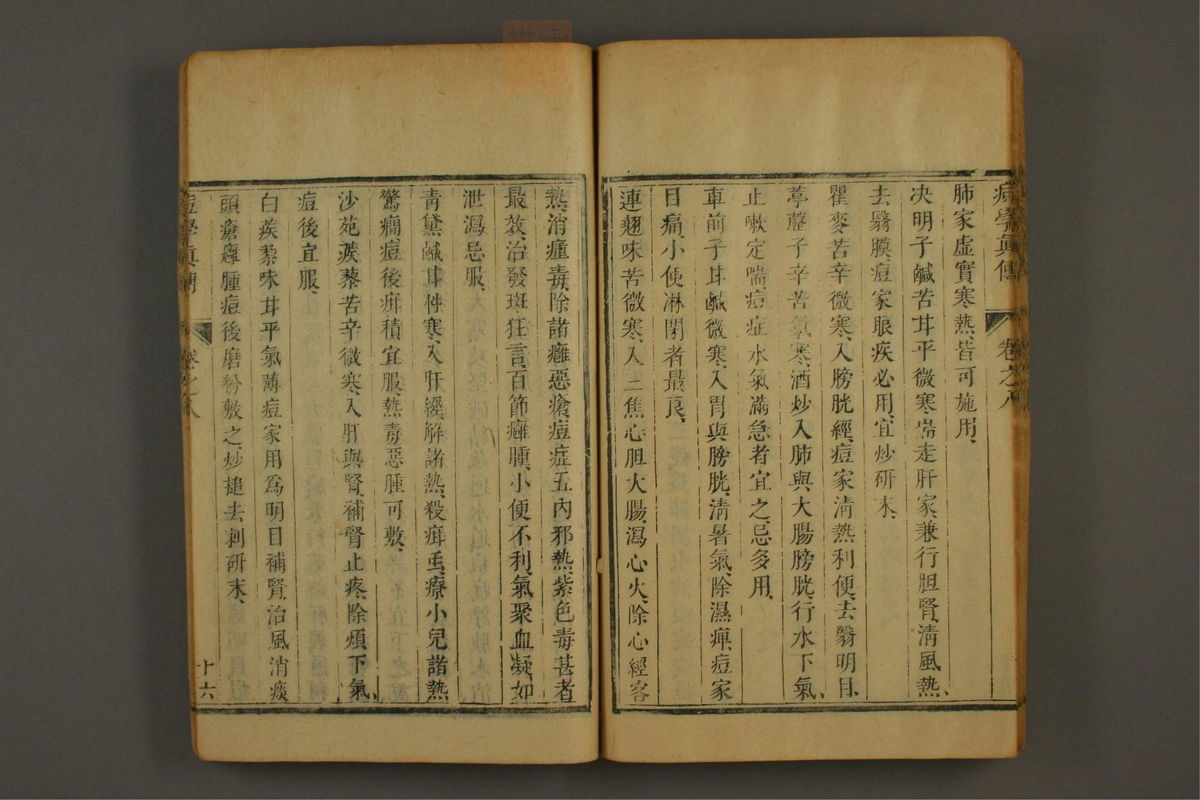 痘學眞傳 卷之八
肺家虛實寒熱皆可施用、
决明子鹹苦甘平微寒耑走肝家兼行胆腎、清風熱、
去翳膜痘家眼疾必用、宜炒研末、
瞿麥苦辛微寒、入膀胱經、痘家清熱利便、去翳明目、
葶藶子辛苦氣寒、酒炒入肺與大腸膀胱、行水下氣、
止嗽定喘痘症水氣滿急者宜之、忌多用、
車前子甘鹹微寒、入胃與膀胱、清暑氣、除濕痺、痘家
目痛、小便淋閉者最良、
連翹味苦微寒、入三焦心胆大腸瀉心火、除心經客
熱、消瘇毒、除諸癰惡瘡、痘症五內邪熱、紫色毒甚者
最效、治發斑狂言、百節癰腫、小便不利、氣聚血凝、如
泄瀉忌服、
青黛鹹甘性寒、入肝經、解諸熱、殺疳虫、療小兒諸熱
驚癇、痘後疳積宜服、熱毒惡腫可敷、
沙苑蒺藜苦辛微寒、入肝與腎、補腎止疼、除煩下氣、
痘後宜服、
白蒺藜味甘平氣薄痘家用為明目補腎、治風消痰
頭瘡癰腫痘後磨粉敷之、炒搥去刺研末、
痘學眞傳 卷之八 十六